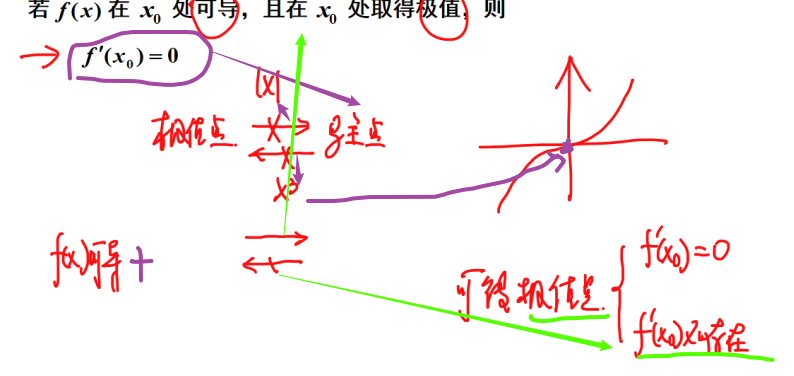 若 f(x) 在 x₀ 处可导，且在 x₀ 处取得极值，则
f′(x₀)=0
|x|
极值点 驻点
x³
f(x)可导+
可疑极值点 f′(x₀)=0
f′(x₀)不存在